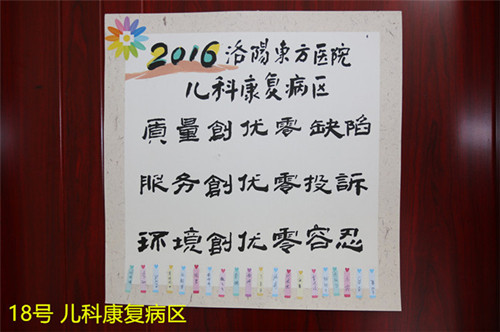 2016 洛陽東方医院
儿科康复病区
质量創优零缺陷
服务創优零投訴
环境創优零容忍
18号 儿科康复病区